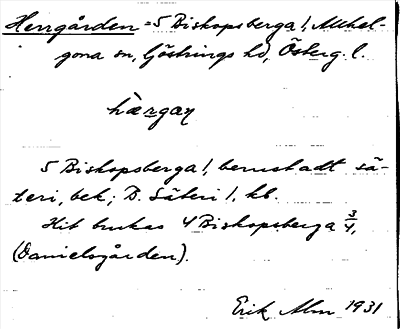 Herrgården = 5 Biskopsberga 1, Allhel-
gona sn, Göstrings hd, Österg. l.
hærgaɳ
5 Biskopsberga 1, berustadt sä-
teri, bek; B. Säteri 1, kb.
Hit brukas 4 Biskopsberga 3/4,
(Danielsgården).
Erik Alm 1931